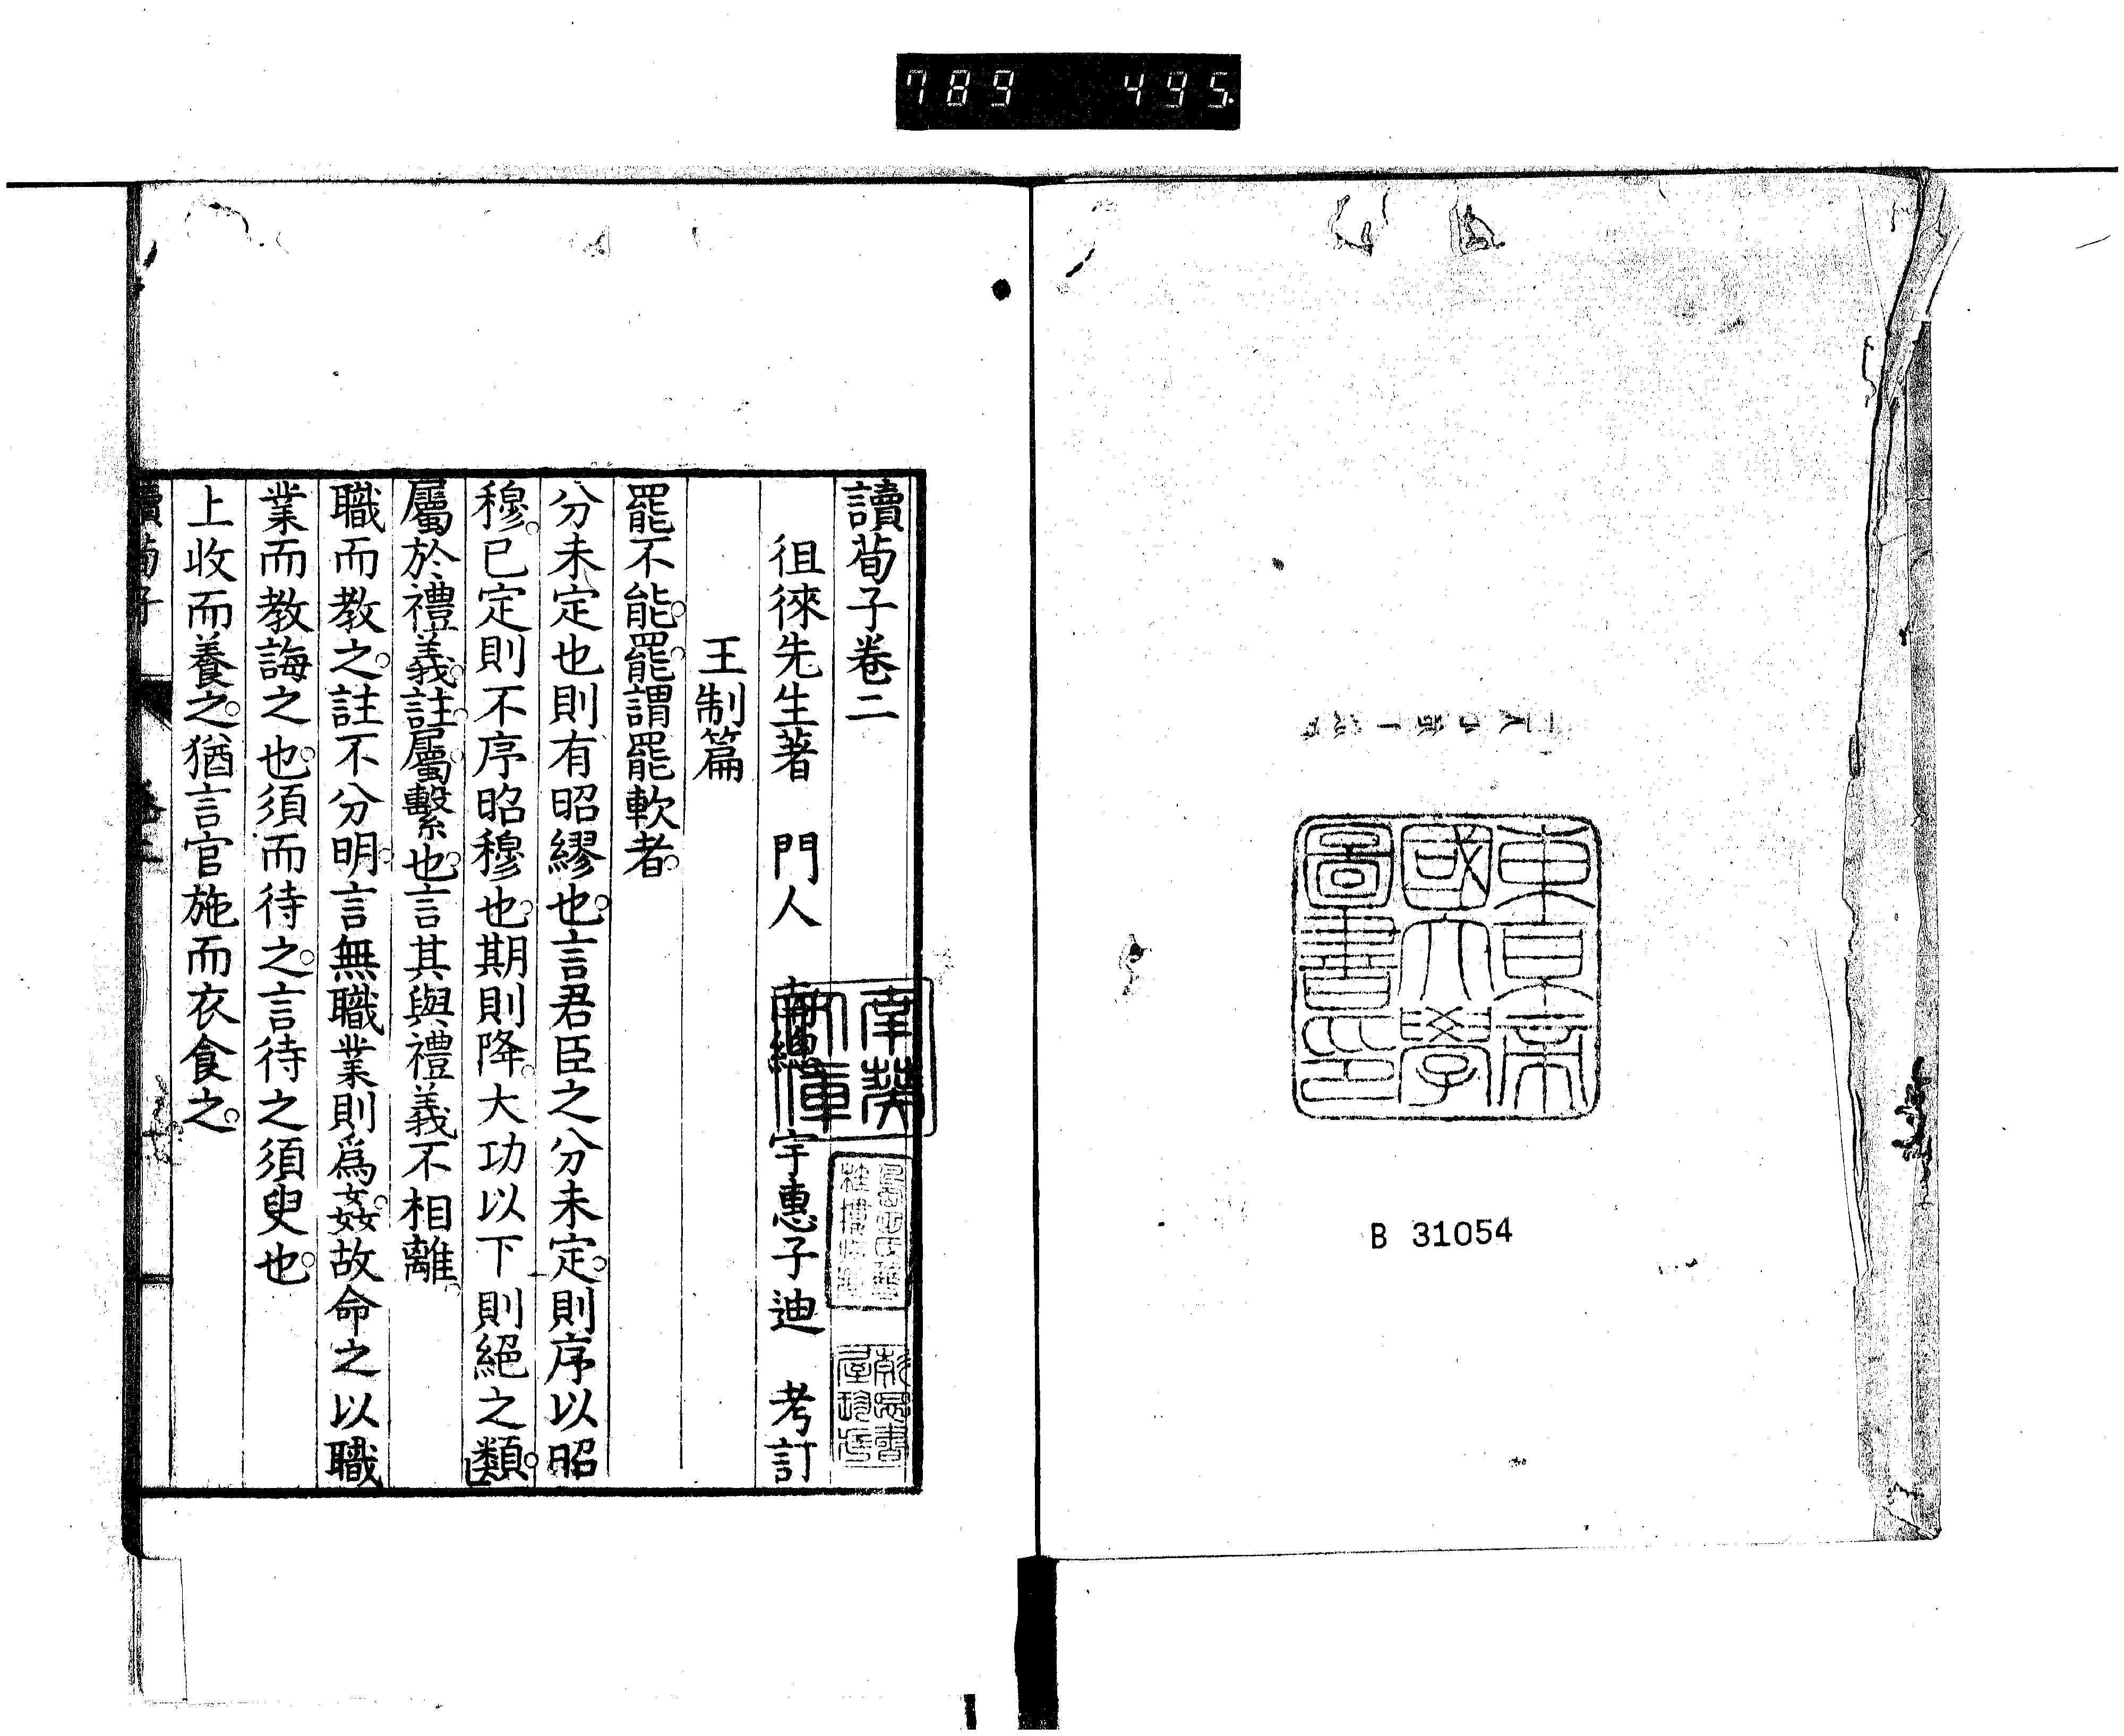 789 495.
東京帝
國大學
圖書印
B 31054
讀荀子卷二
徂徠先生著 門人 南總 宇惠子迪 考訂
王制篇
罷不能。罷。謂罷軟者。
分未定也則有昭繆也。言君臣之分未定。則序以昭
穆。已定則不序昭穆也。期則降。大功以下則絕之類。
屬於禮義。註。屬。繫也。言其與禮義不相離。
職而教之。註不分明。言無職業則爲姦。故命之以職
業而教誨之也。須而待之。言待之須臾也。
上收而養之。猶言官施而衣食之。
讀荀子